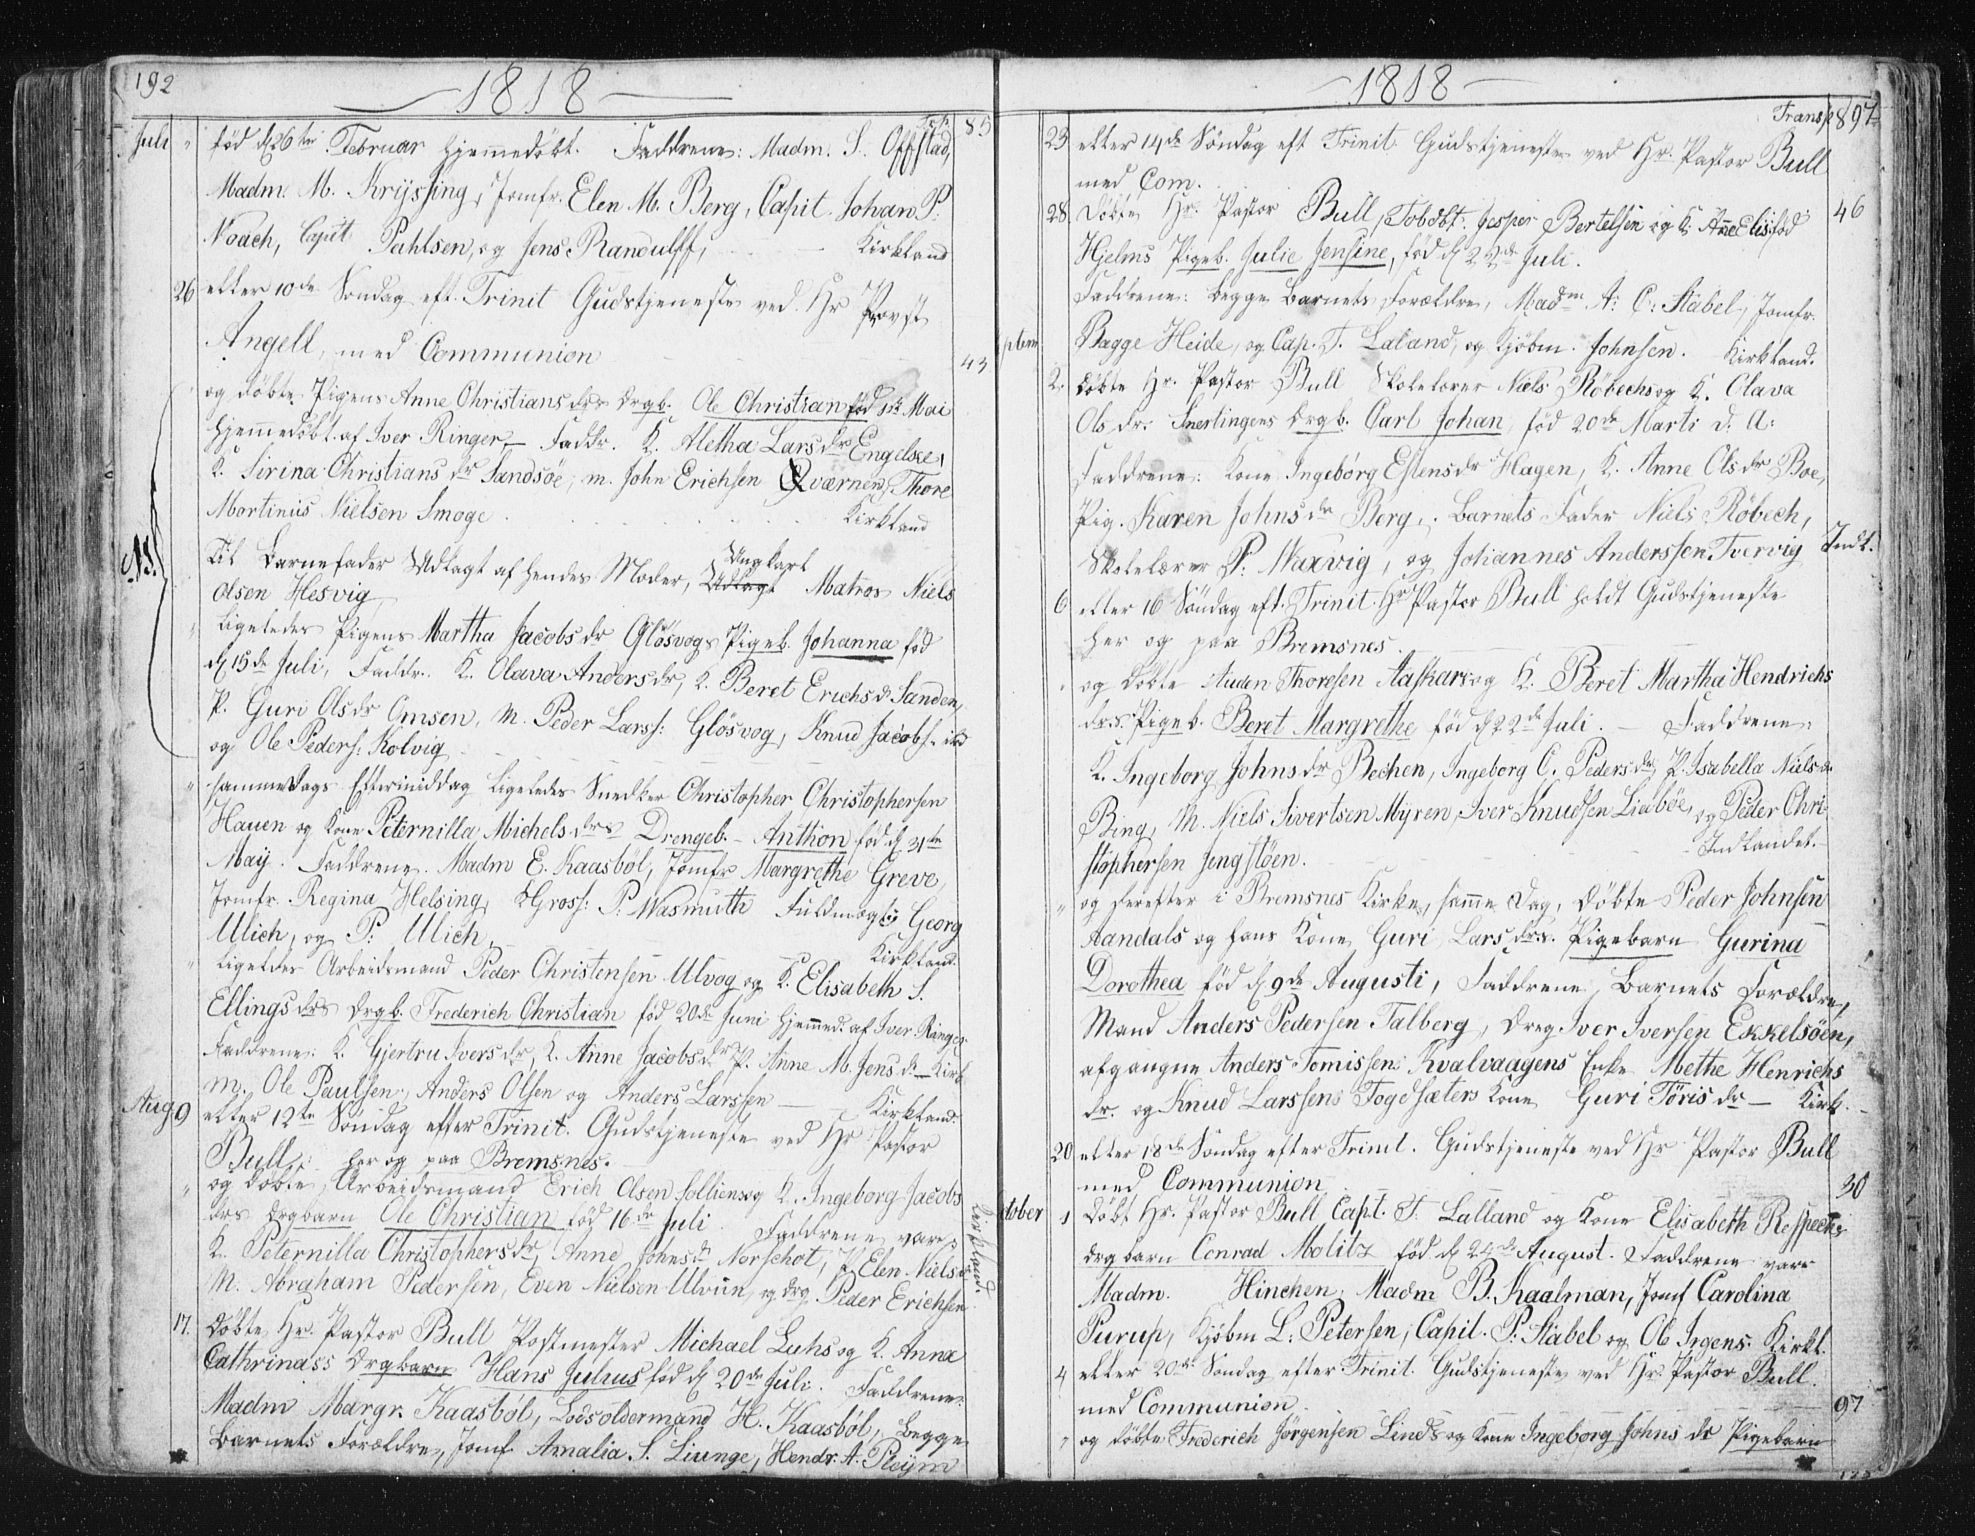 192
1818
Trsp. 85
Juli " født d 26te Februar hjemmedøbt. Faddrene: Madm. S. Offstad,
Madm. M. Kryssing, Jomfr. Elen M. Berg, Capit. Johan P.
Noach, Capit Pahlsen, og Jens Randulff, Kirkland
26 efter 10de Søndag eft. Trinit Gudstjeneste ved Hr Provst
Angell, med Communion 43
og døbte Pigens Anne Christiansdrs Drgb. Ole Christian fød 1ste Mai
hjemmedøbt af Iver Ringer. Faddr. K. Aletha Larsdr Engelsee,
K. Sirina Christiansdr Sandsöe, m. John Erichsen Qværnen, Thore
Mortinus Nielsen Smoge Kirkland
NB. Til Barnefader Udlagt af hendes Moder, Udlagt Ungkarl Matros Niels
Olsen Hesvig
" Ligeledes Pigens Martha Jacobsdr Glösvogs Pigeb. Johanna fød
d 15de Juli, Faddr. K. Olava Andersdr, K. Beret Erichsd. Sanden,
P. Guri Olsdr Omsen, M. Peder Larss: Glösvog, Knud Jacobs.
og Ole Peders: Kolvig
" samme Dags Eftermiddag Ligeledes Snedker Christopher Christophersen
Hauen og Kone Peternilla Michelsdrs Drengeb. Anthon fød d 31te
May. Faddrene. Madm E. Kaasböl, Jomfr Margrethe Greve,
Jomfr. Regina Helsing, Gross: P. Wasmuth Fuldmægtig Georg
Ulich, og P: Ulich, Kirkland.
" Ligeledes Arbeidsmand Peder Christensen Ulvog og K. Elisabeth S.
Ellingsdrs Drgb. Frederich Christian fød 20de Juni hjemmed. af Iver Ringer
Faddrene: K. Gjertru Iversdr, K. Anne Jacobsdr P. Anne M. Jensd.
M. Ole Paulsen, Anders Olsen og Anders Larssen Kirkland.
Aug 9 efter 12te Søndag efter Trinit. Gudstjeneste ved Hr Pastor
Bull, her og paa Bremsnes.
" og døbte, Arbeidsmand Erich Olsen Solliens og K. Ingeborg Jacobs
drs Drgbarn Ole Christian fød 16de Juli Faddrene vare:
K. Peternilla Christophersdr, Anne Johnsd. Norschot, P. Elen Nielsd.
M. Abraham Pedersen, Even Nielsen Ulvun, og drg. Peder Erichsen.
Kirkland.
17. døbte Hr. Pastor Bull Postmester Michael Luhs og K. Anna
Cathrinass Drgbarn Hans Julius fød d 20de Juli. Faddrene:
Madm Margr. Kaasböl, Lodsoldermand H. Kaasböl, begge
Barnets Forældre, Jomf. Amalia S. Liunge, Hendr. A. Pleym
1818
Transp 897
23 efter 14de Søndag eft Trinit Gudstjeneste ved Hr. Pastor Bull
med Com. 46
28 Døbte Hr. Pastor Bull, Jesper Bertelsen og K: Anne Elis:
Hjelms Pigeb. Julie Jensine, fød d 22de Juli.
Faddrene: begge Barnets Forældre, Madm A: C: Stäbel, Jomfr.
Bagge Heide, og Cap. T. Laland, og Kjøbm. Johnsen. Kirkland.
ptem 2. døbte Hr. Pastor Bull Skolelærer Niels Röbechs og K. Olava
Olsdr. Snertingens Drgb. Carl Johan, fød 20de Marti d. A:
Faddrene: Kone Ingebörg Estensdr Hagen, K. Anne Olsdr Boe,
Pig. Karen Johnsdr Berg, Barnets Fader Niels Röbech,
Skolelærer P: Waxvig, og Johannes Anderssen Tvervig Indl.
6 efter 16 Søndag eft. Trinit Hr Pastor Bull holdt Gudstjeneste
her og paa Bremsnes.
" og døbte Auden Thoresen Aaskars og K. Beret Martha Hendrichs
drs. Pigeb. Beret Margrethe fød d 22de Juli. Faddrene:
K. Ingeborg Johnsdr Bechen, Ingeborg C. Pedersdr, P. Isabella Nielsdr
Bing, M. Niels Sivertsen Myren, Iver Knudsen Liaböe, og Peder Chri-
stophersen Jengstöen. Indlandet.
" og derefter i Bremsnes Kirke, samme Dag, døbte Peder Johnsen
Aandals og hans Kone Guri Larsdrs. Pigebarn Gurina
Dorothea fød d 9de Augusti, Faddrene, Barnets Forældre,
Mand Anders Pedersen Talberg, Dreg Iver Iversen Ekkelsöen,
afgangne Anders Tomissen Kvalvaagens Enke Methe Henrichs
dr. og Knud Larssens Fogdsæters Kone Guri Törisdr Kirk.
20 efter 18de Søndag efter Trinit. Gudstjeneste ved Hr Pastor Bull
med Communion 30
ctober 1 Døbt Hr. Pastor Bull Capt. T. Lalland og Kone Elisabeth Respects
drgbarn Conrad Molitz fød d 24de August. Faddrene vare
Madm. Hinchen, Madm B. Kaalman, Jomf Carolina
Purup, Kjøbm L: Petersen, Capit. P: Stäbel og Ob Irgens. Kirkl.
4 efter 20de Søndag efter Trinit. Gudstjeneste ved Hr. Pastor Bull.
med Communion. 97
" og døbte Frederich Jörgensen Linds og Kone Ingeborg Johnsdr Pigebarn